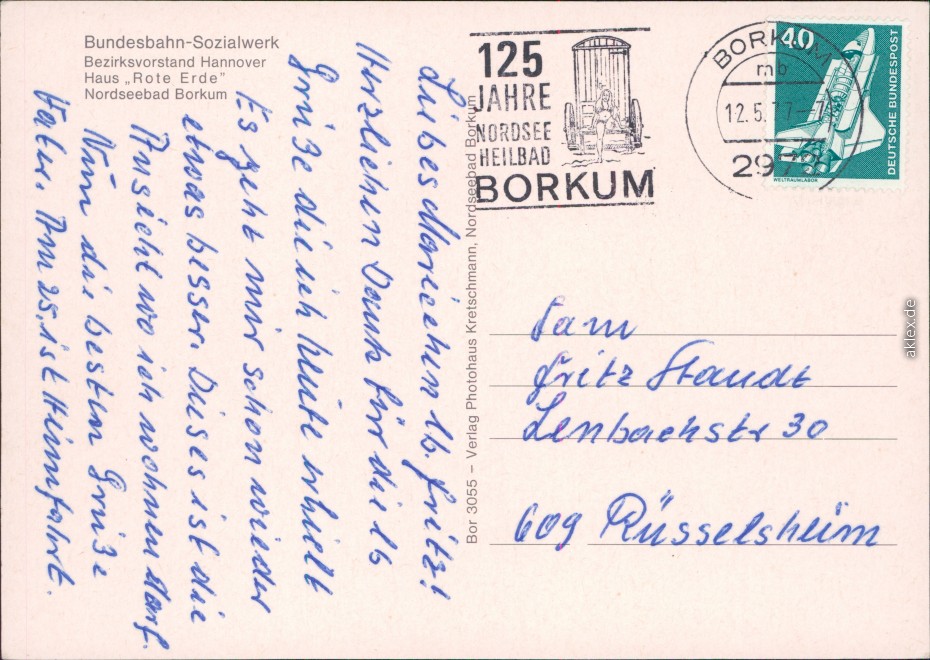 Bundesbahn-Sozialwerk
Bezirksvorstand Hannover
Haus „Rote Erde"
Nordseebad Borkum
125
JAHRE
NORDSEE
HEILBAD
BORKUM
BORKUM
mb
12.5.77
2972
40
DEUTSCHE BUNDESPOST
WELTRAUMLABOR
Liebes Mariechen lb. Fritz!
Herzlichen Dank für die lb
Grüße die ich heute erhielt
Es geht mir schon wieder
etwas besser. Dieses ist die
Ansicht wo ich wohnen darf.
Nun die besten Grüße
Vater. Am 25. ist Heimfahrt.
Bor 3055 – Verlag Photohaus Kretschmann, Nordseebad Borkum
Fam
Fritz Staudt
Lenbachstr 30
609 Rüsselsheim
aklex.de